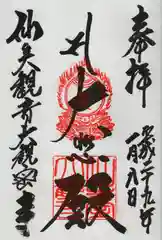 奉拝
平成二十九年
一月八日
大悲殿
仙天觀音大觀密寺